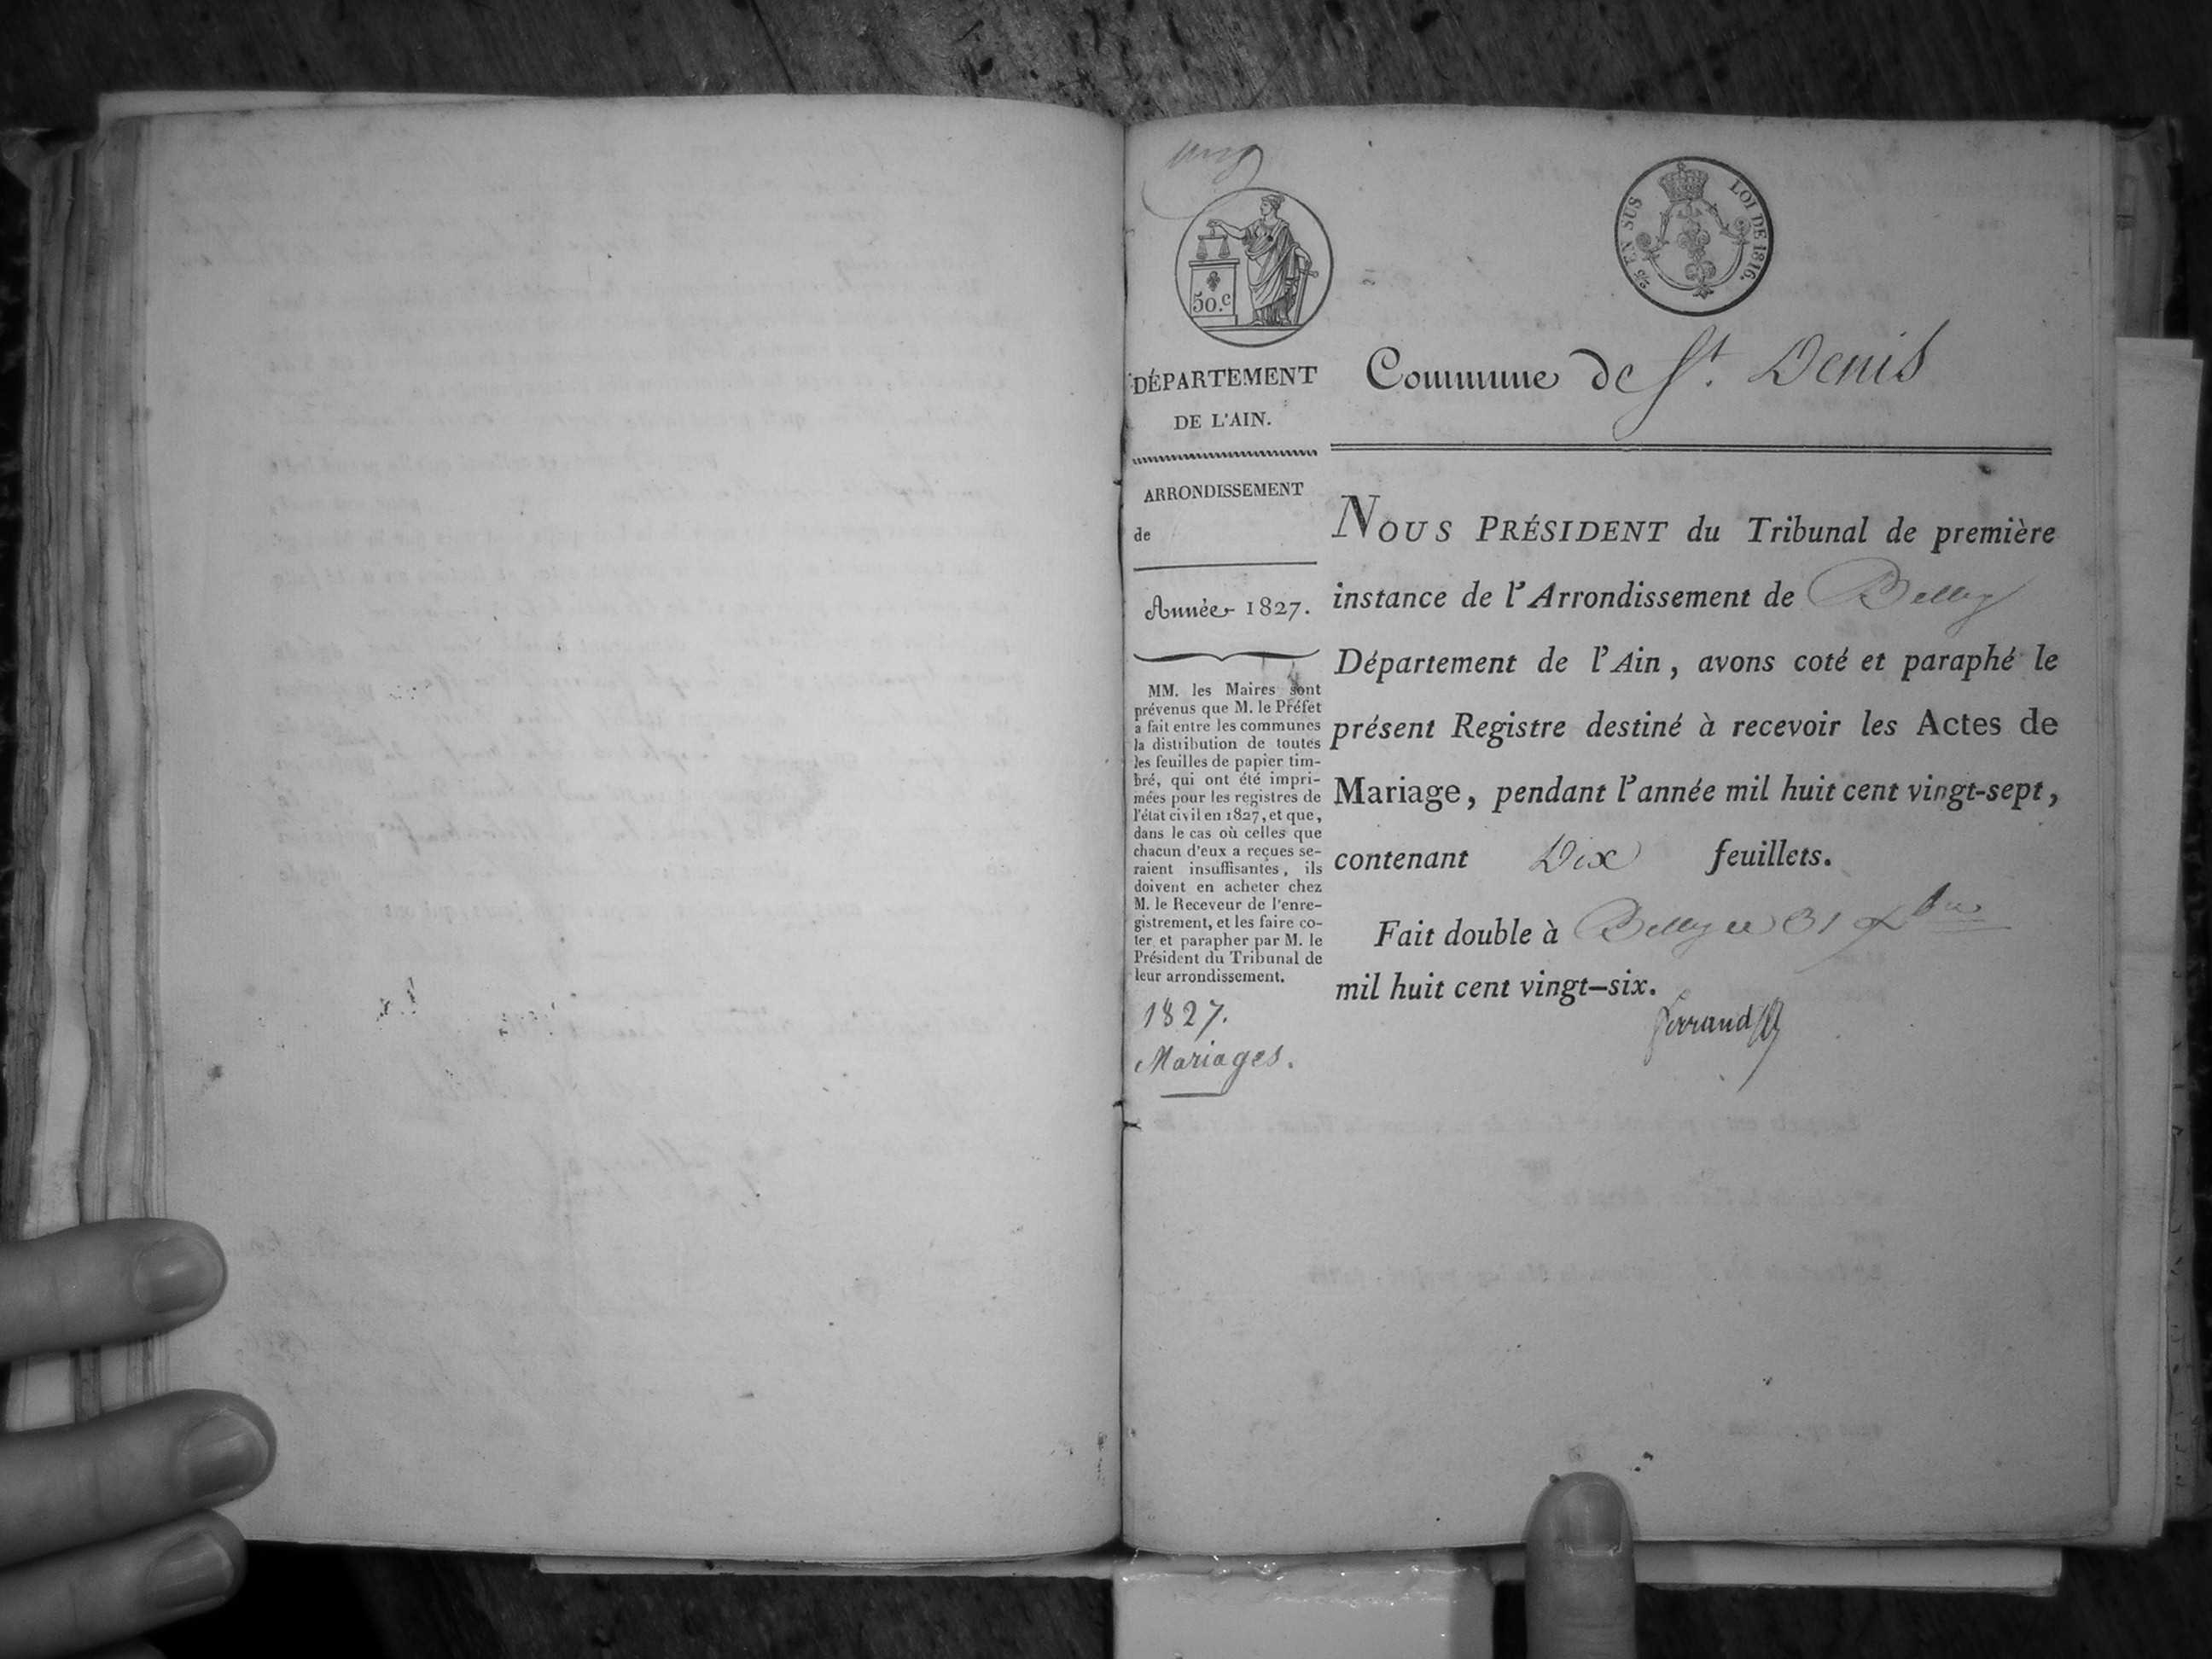 50.c
2/10 EN SUS LOI DE 1816.
DÉPARTEMENT
DE L'AIN.
ARRONDISSEMENT
de
Année 1827.
MM. les Maires sont
prévenus que M. le Préfet
a fait entre les communes
la distribution de toutes
les feuilles de papier tim-
bré, qui ont été impri-
mées pour les registres de
l'état civil en 1827, et que,
dans le cas où celles que
chacun d'eux a reçues se-
raient insuffisantes, ils
doivent en acheter chez
M. le Receveur de l'enre-
gistrement, et les faire co-
ter et parapher par M. le
Président du Tribunal de
leur arrondissement.
1827.
Mariages.
Commune de St. Denis
NOUS PRÉSIDENT du Tribunal de première
instance de l'Arrondissement de Belley
Département de l'Ain, avons coté et paraphé le
présent Registre destiné à recevoir les Actes de
Mariage, pendant l'année mil huit cent vingt-sept,
contenant Dix feuillets.
Fait double à Belley ce 31 Xbre
mil huit cent vingt-six.
Ferrand